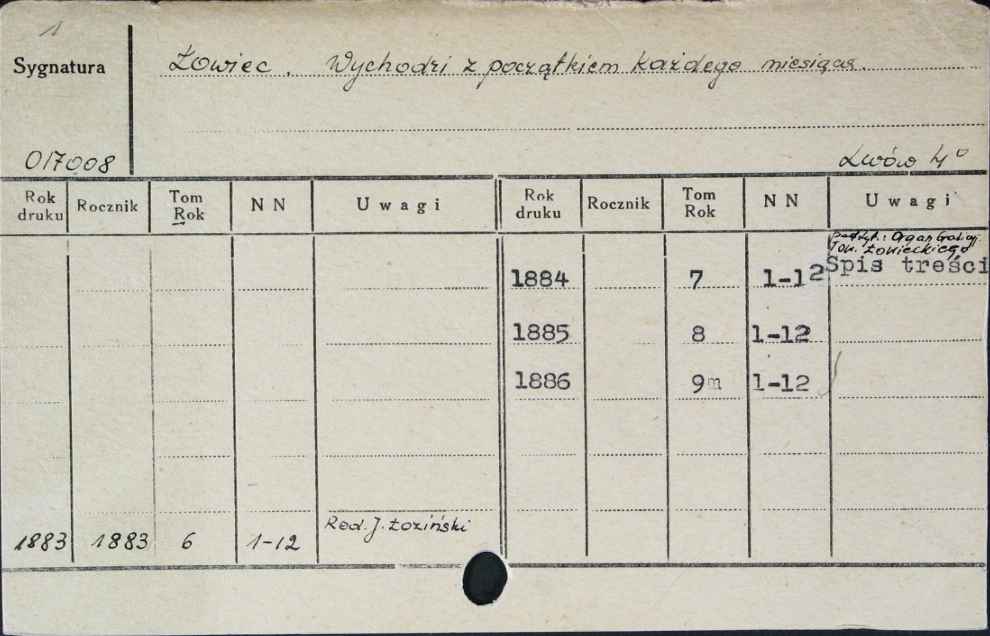 1
Sygnatura
Łowiec. Wychodzi z początkiem każdego miesiąca.
017008
Lwów 4°
Rok druku Rocznik Tom Rok NN Uwagi Rok druku Rocznik Tom Rok NN Uwagi
podtyt.: Organ Galicyj.
Tow. Łowieckiego
1884 7 1-12 Spis treści
1885 8 1-12
1886 9m 1-12
Red. J. Łoziński
1883 1883 6 1-12